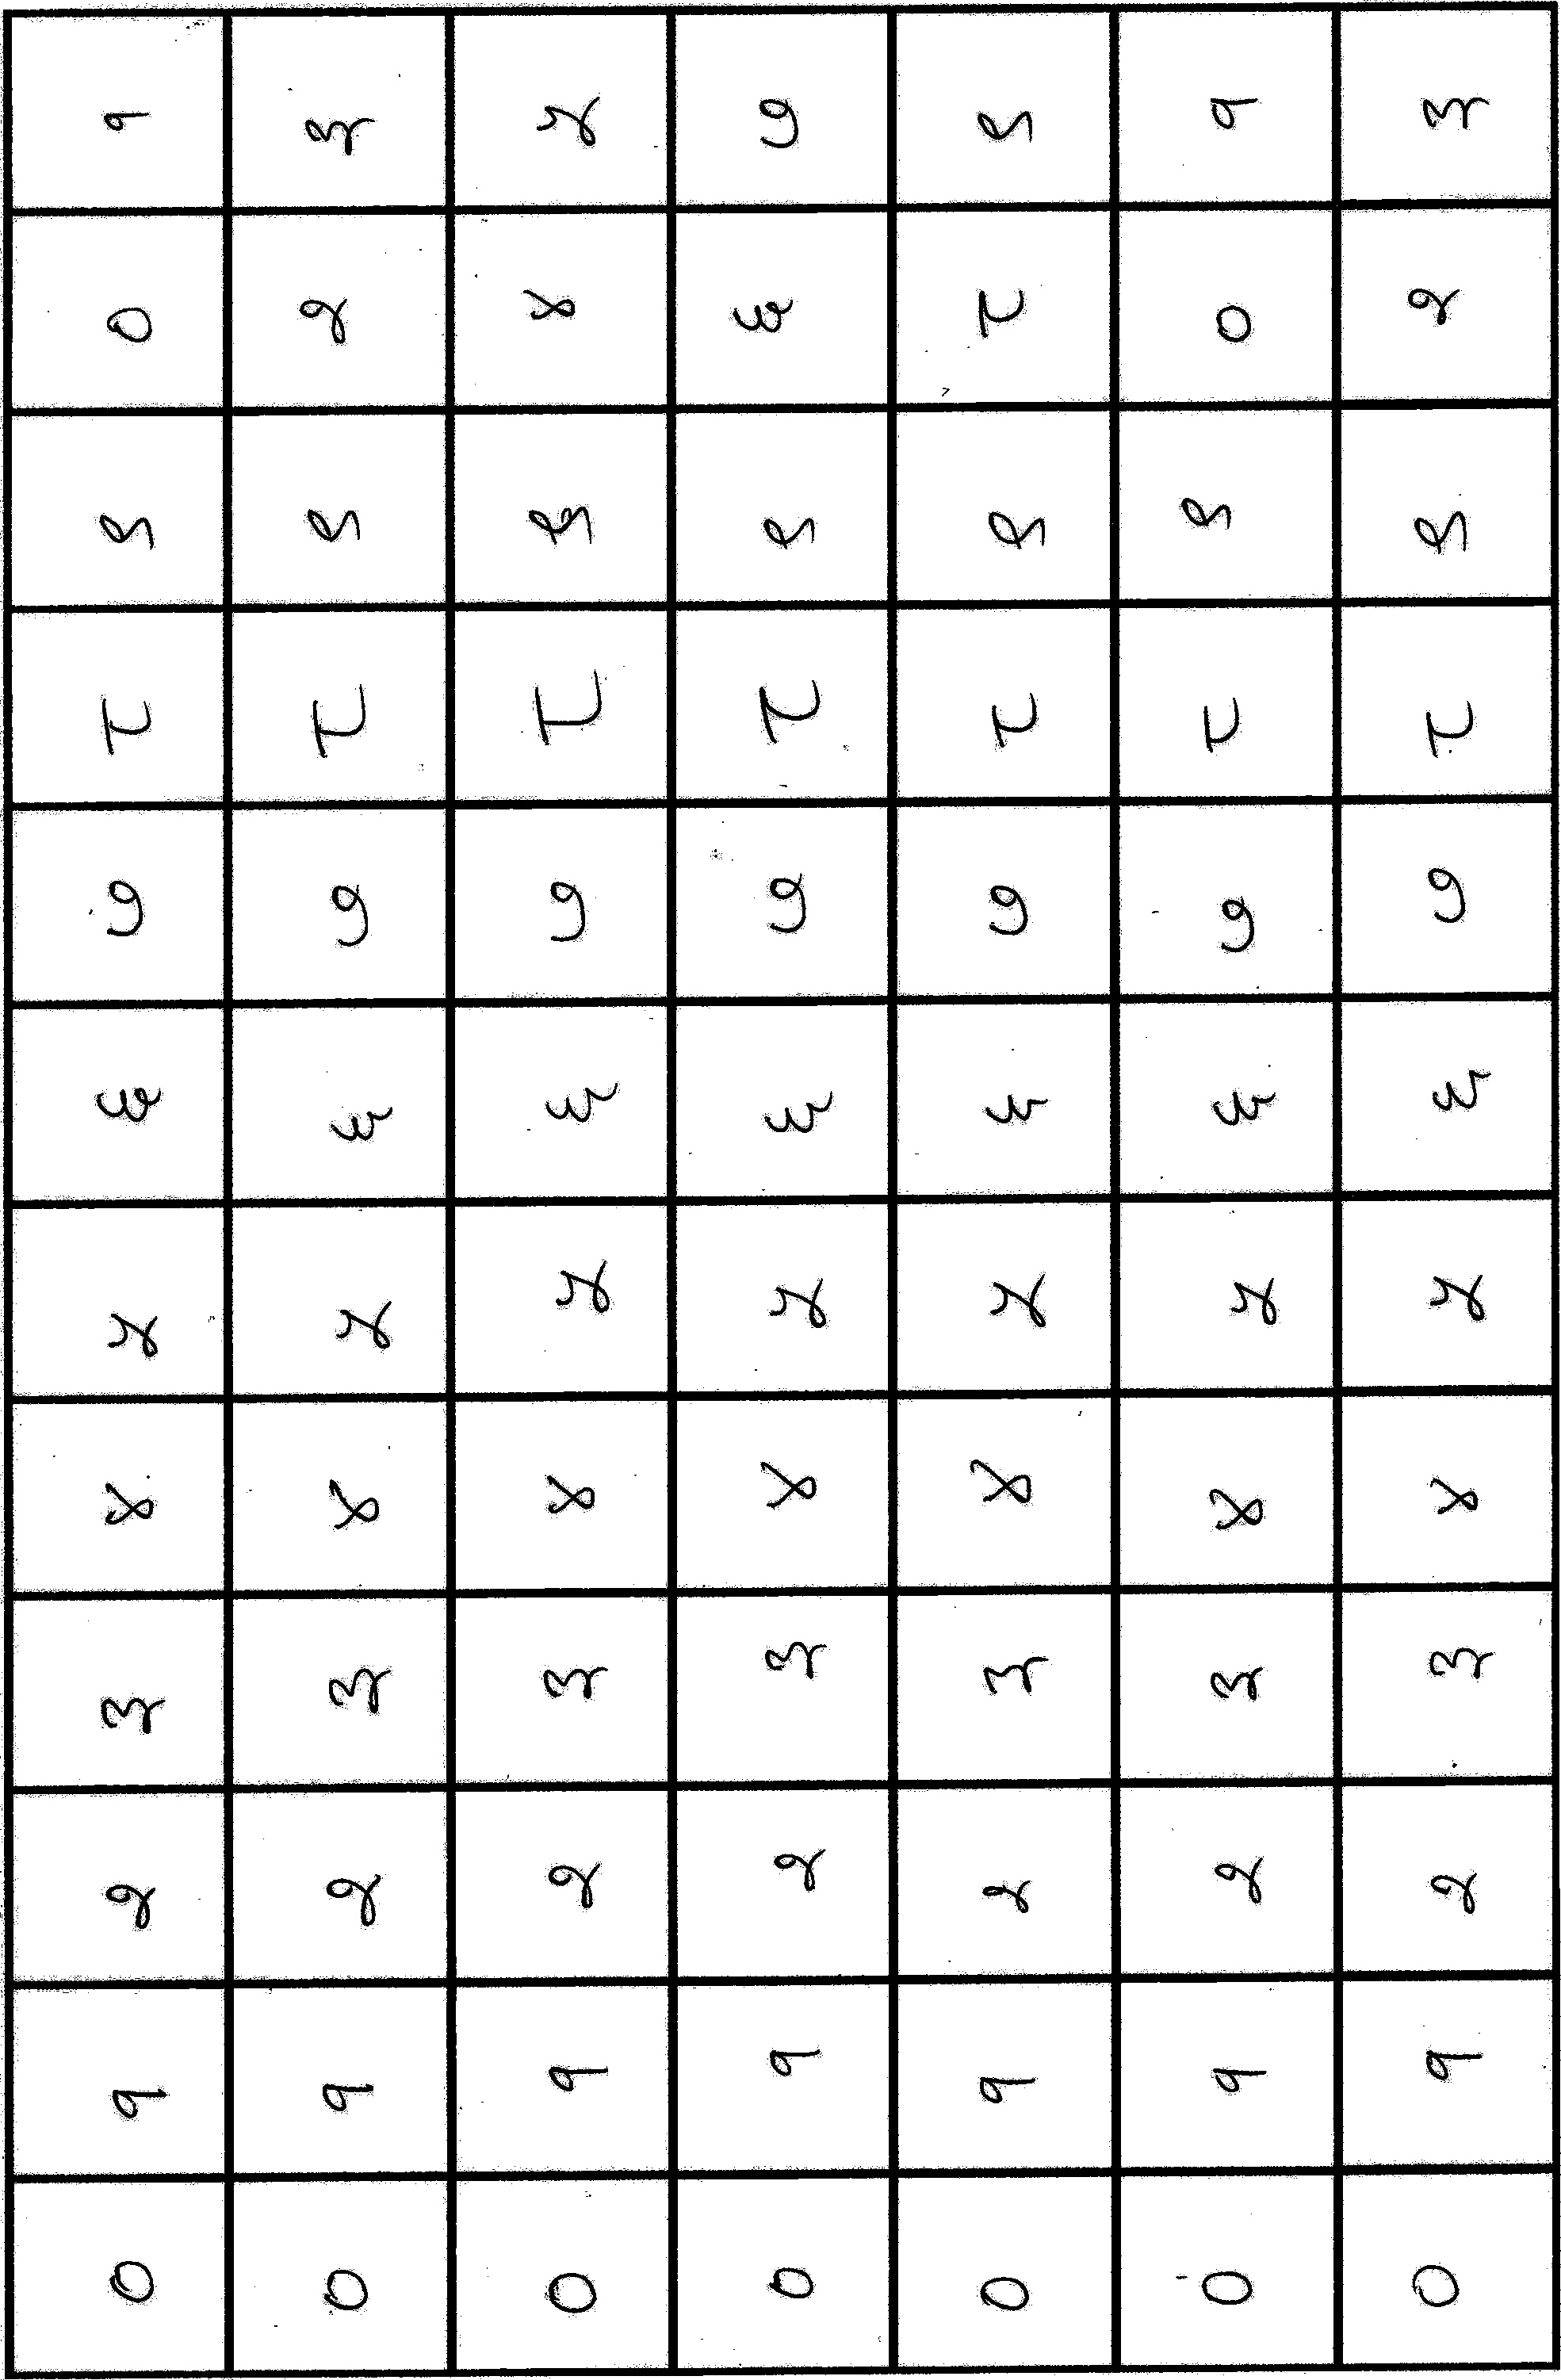 ० १ २ ३ ४ ५ ६ ७ ८ ९ ० १
० १ २ ३ ४ ५ ६ ७ ८ ९ २ ३
० १ २ ३ ४ ५ ६ ७ ८ ९ ४ ५
० १ २ ३ ४ ५ ६ ७ ८ ९ ६ ७
० १ २ ३ ४ ५ ६ ७ ८ ९ ८ ९
० १ २ ३ ४ ५ ६ ७ ८ ९ ० १
० १ २ ३ ४ ५ ६ ७ ८ ९ २ ३